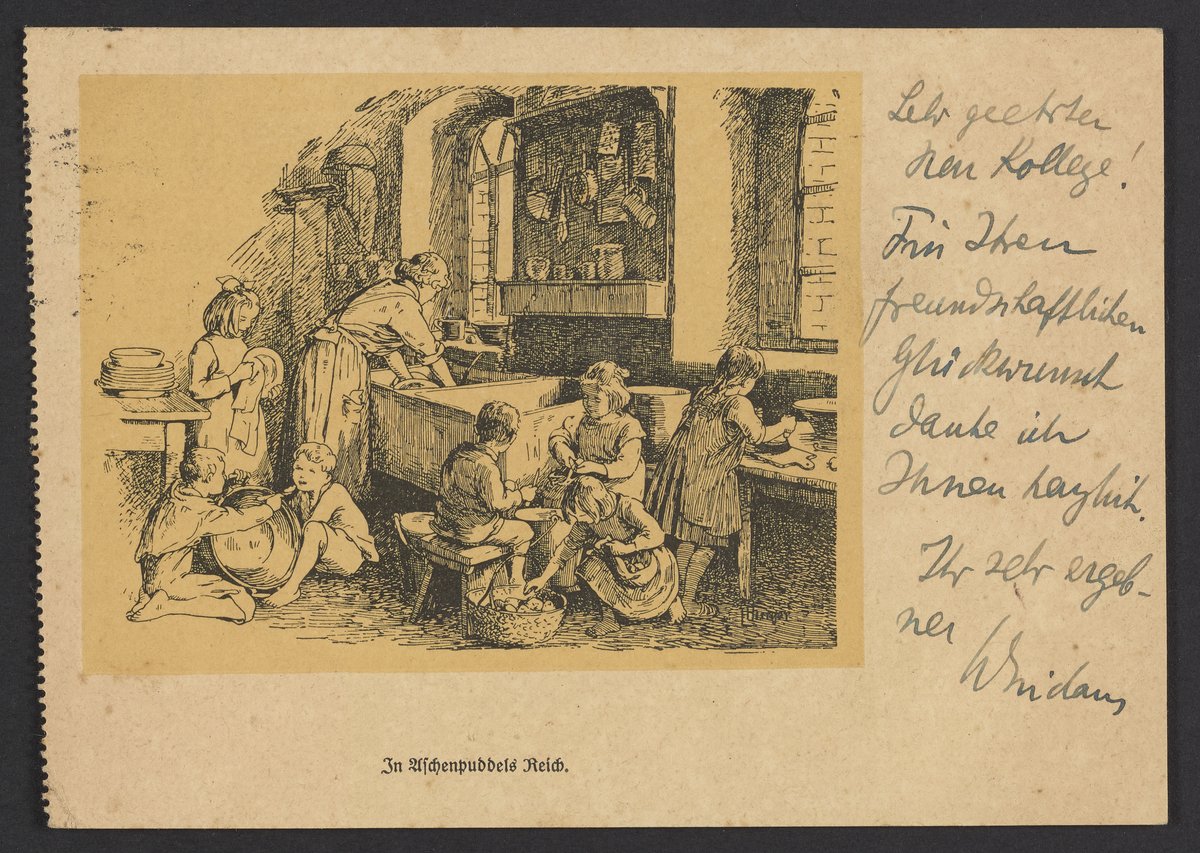 Sehr geehrter
Herr Kollege!
Für Ihren
freundschaftlichen
Glückwunsch
danke ich
Ihnen herzlich.
Ihr sehr ergeb-
ner
In Aschenpuddels Reich.